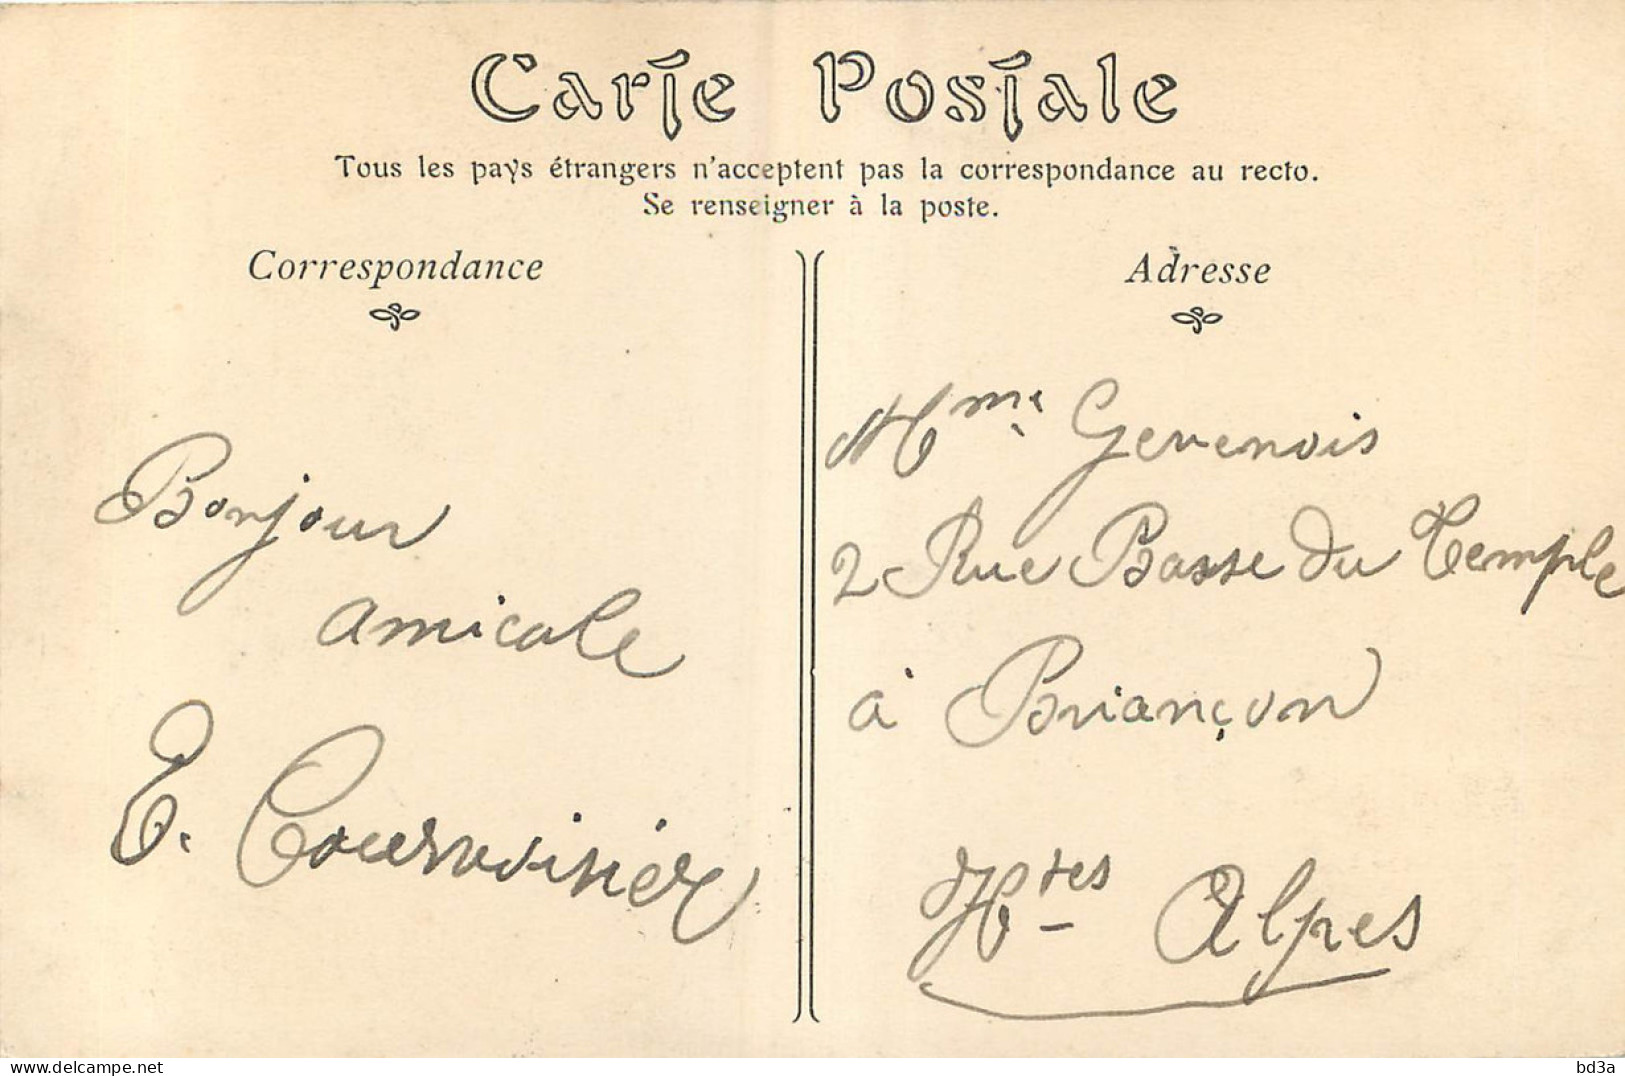 Carte Postale
Tous les pays étrangers n'acceptent pas la correspondance au recto.
Se renseigner à la poste.
Correspondance
Bonjour
amicale
E.
Adresse
Mme Gevenois
2 Rue Basse du Temple
à Briançon
Htes Alpes
delcampe.net
bd3a